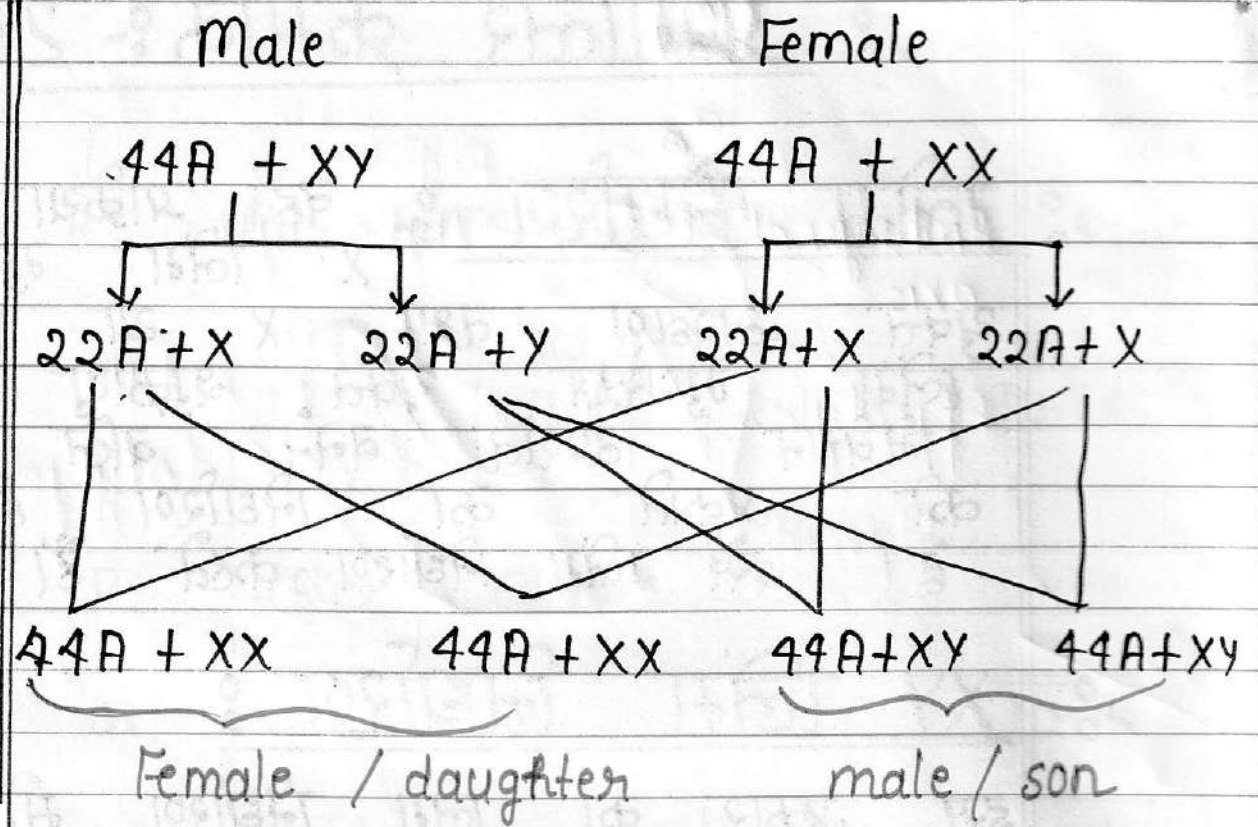 Male Female
44A + XY 44A + XX
22A + X 22A + Y 22A + X 22A + X
44A + XX 44A + XX 44A + XY 44A + XY
Female / daughter male / son